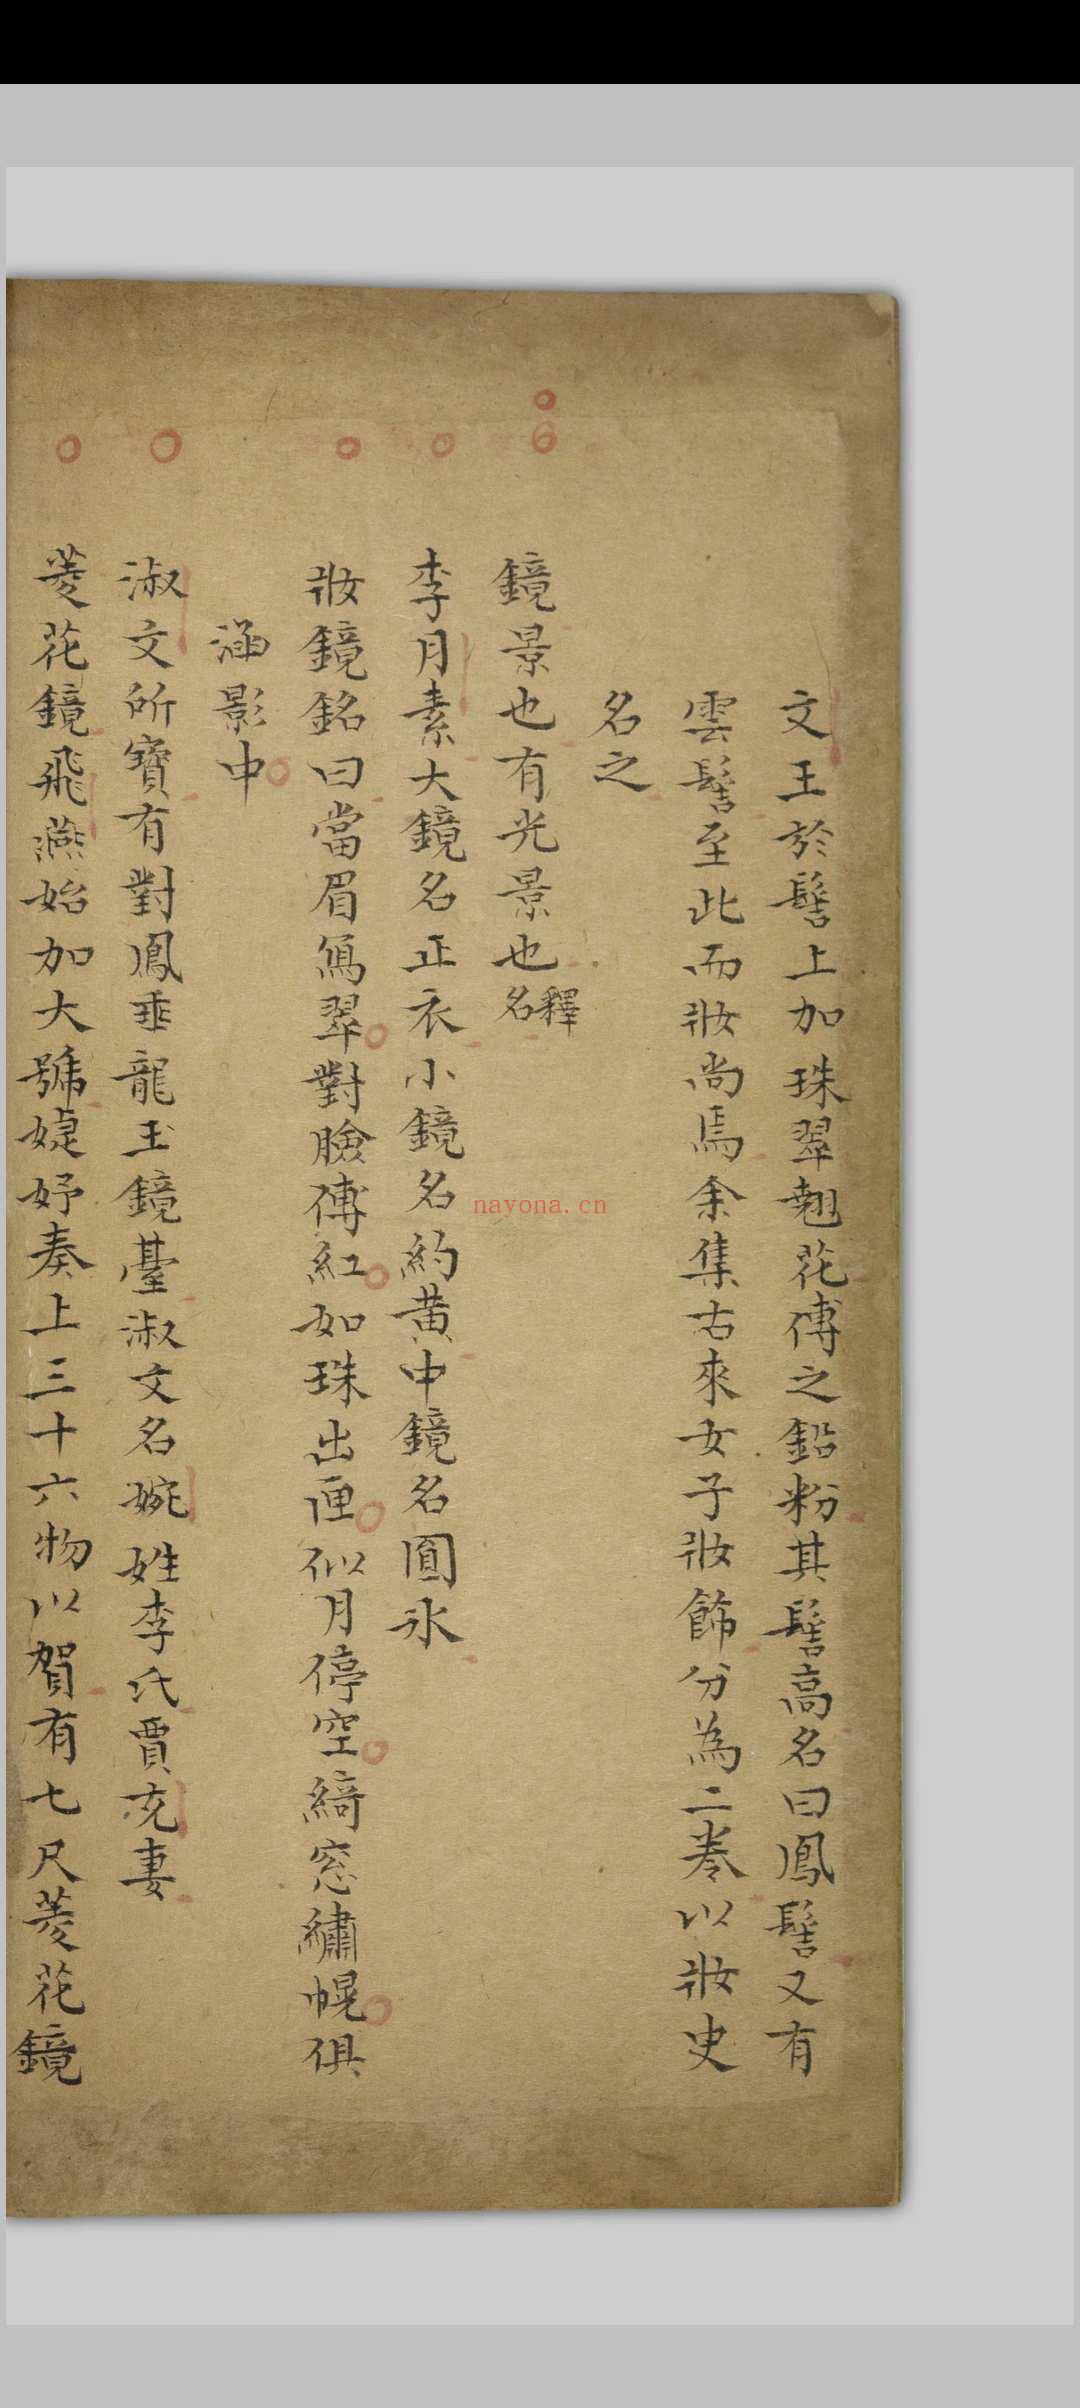 文王於髻上加珠翠翹花傅之鉛粉其髻高名曰鳳髻又有
雲髻至此而妝尚焉余集古來女子妝飾分為二卷以妝史
名之
鏡景也有光景也釋名
李月素大鏡名正衣小鏡名約黃中鏡名圓冰
妝鏡銘曰當眉寫翠對臉傅紅如珠出匣似月停空綺窓繡幌俱
涵影中
淑文所寶有對鳳垂龍玉鏡臺淑文名婉姓李氏賈充妻
菱花鏡飛燕始加大號婕妤奏上三十六物以賀有七尺菱花鏡
nayona.cn